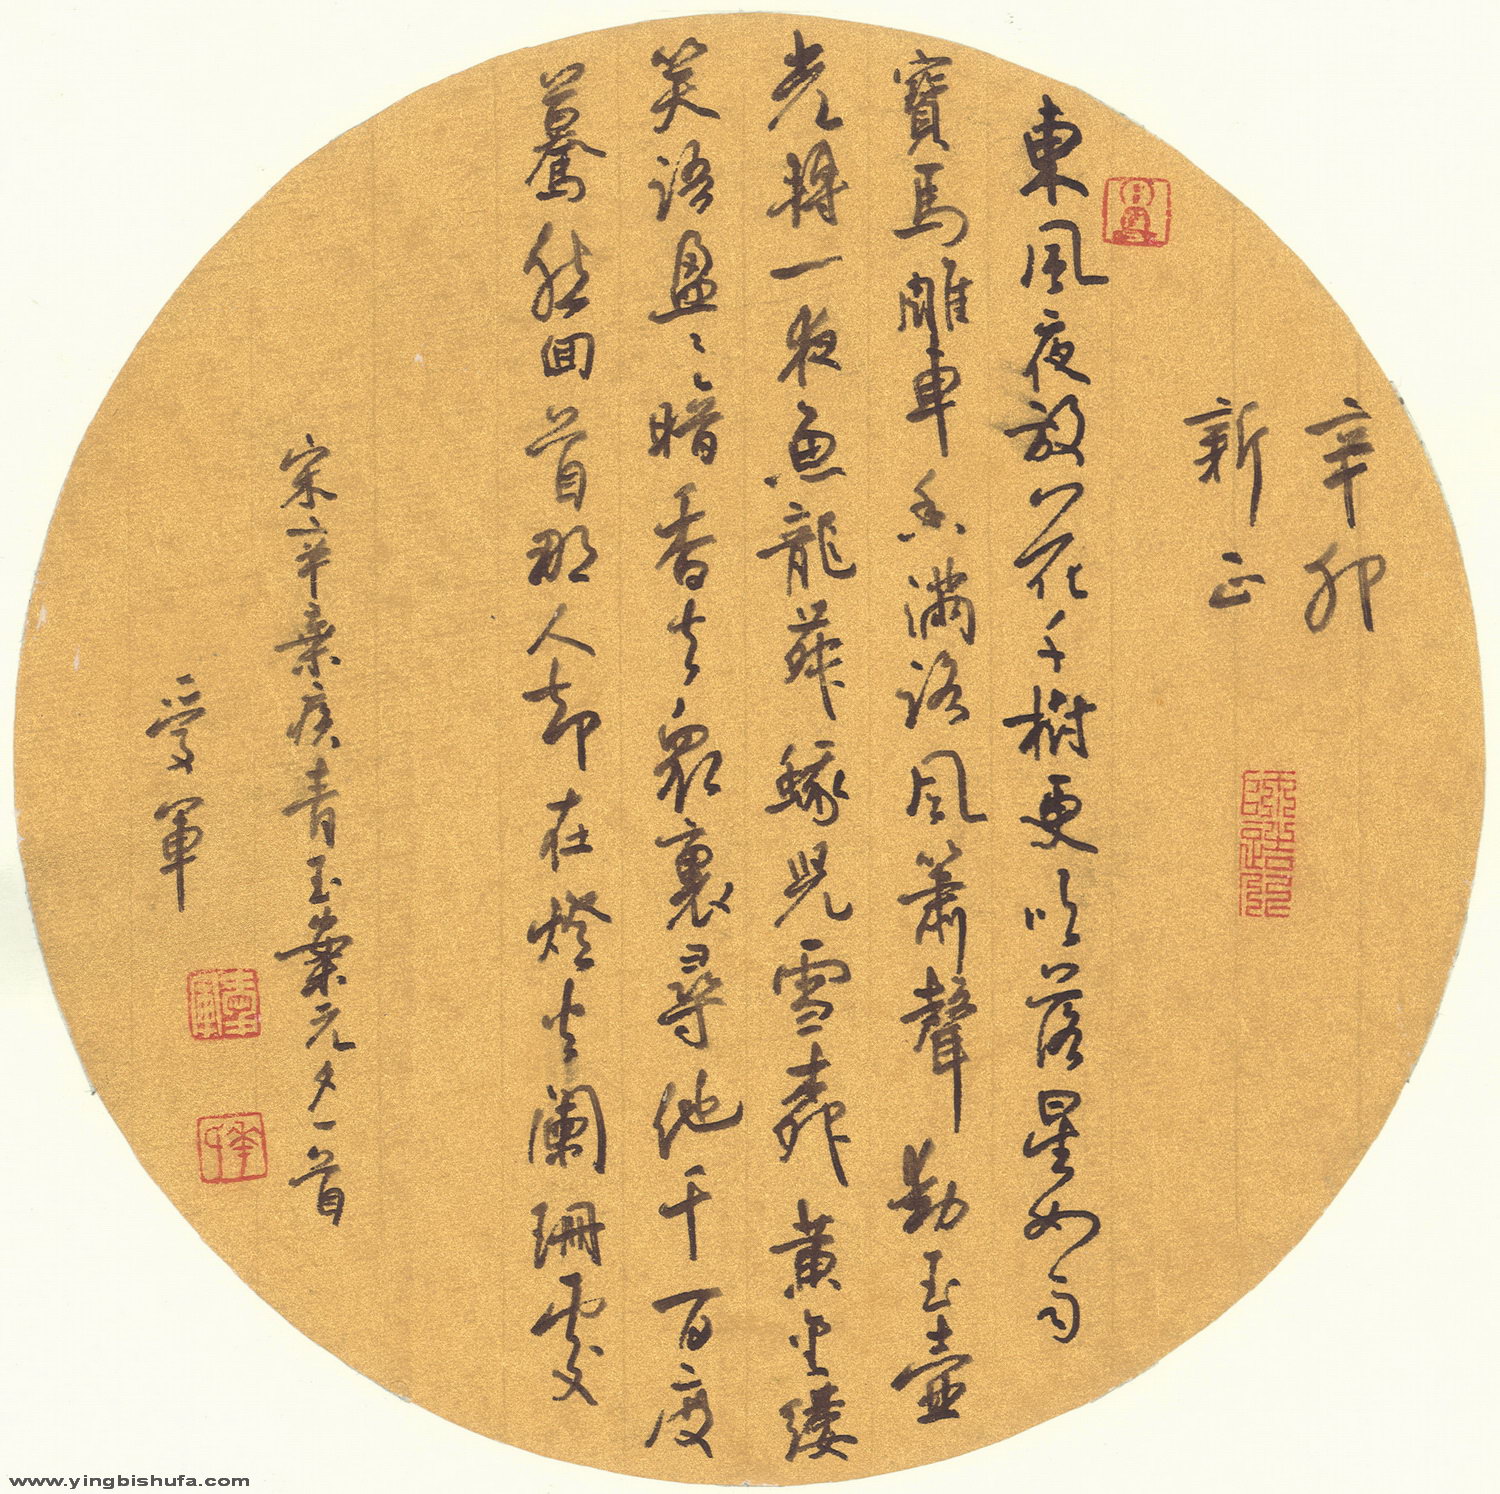 辛卯
新正
東風夜放花千樹更吹落星如雨
寶馬雕車香滿路鳳簫聲動玉壺
光轉一夜魚龍舞蛾兒雪柳黃金縷
笑語盈々暗香去眾裏尋他千百度
驀然回首那人卻在燈火闌珊處
宋辛棄疾青玉案元夕一首
軍
www.yingbishufa.com